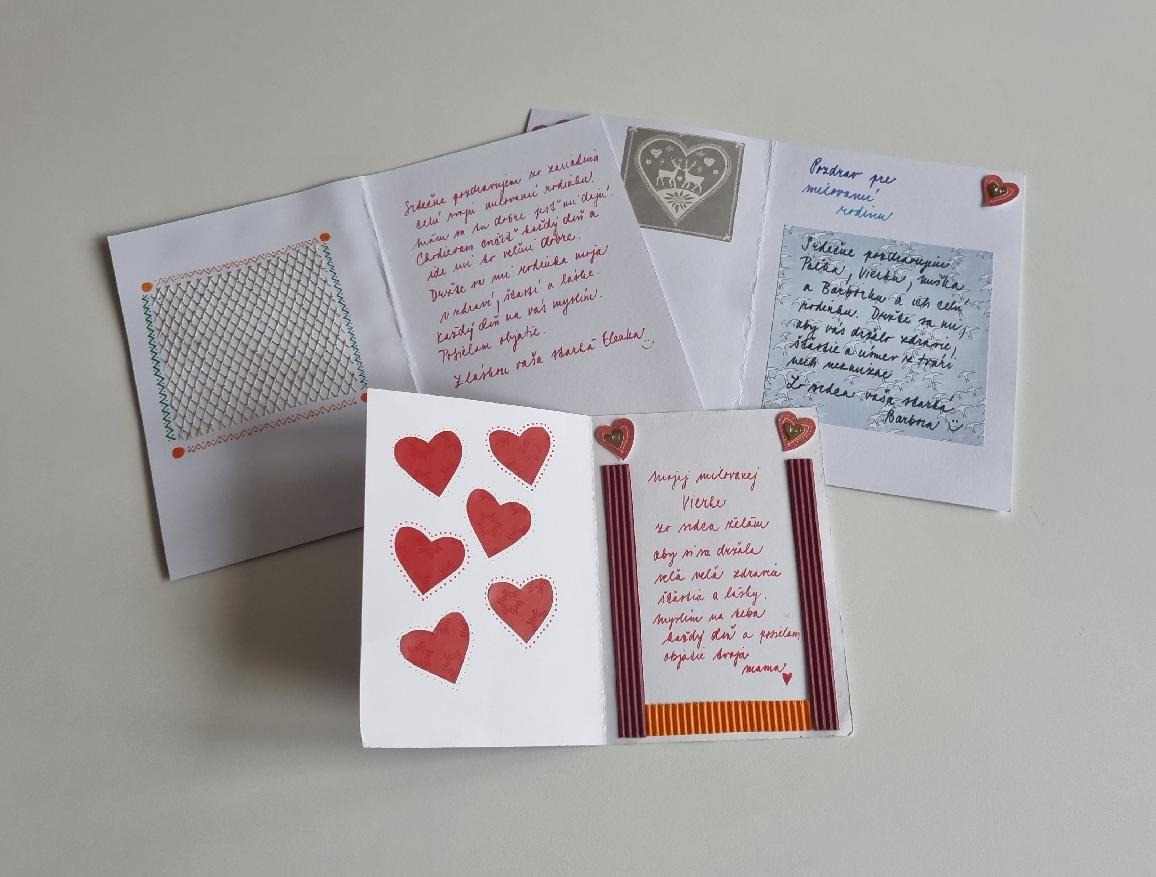 Srdečne pozdravujem zo zariadenia
celú svoju milovanú rodinku.
mám sa tu dobre jesť mi dajú.
Chodievam cvičiť každý deň a
ide mi to veľmi dobre.
Držte sa mi rodinka moja
v zdraví, šťastí a láske.
každý deň na vás myslím.
Posielam objatie.
Z láskou vaša starká Elenka
Pozdrav pre
milovanú
rodinu
Srdečne pozdravujem
Paľka, Vierku,
a Barborku a ich celú
rodinku. Držte sa mi,
aby vás držalo zdravie,
šťastie a úsmev z tvári
nech nezmizne
Zo srdca vaša starká
Barbora
mojej milovanej
Vierke
zo srdca želám
aby si sa držala
veľa veľa zdravia
šťastia a lásky.
myslím na teba
každý deň a posielam
objatie tvoja
mama